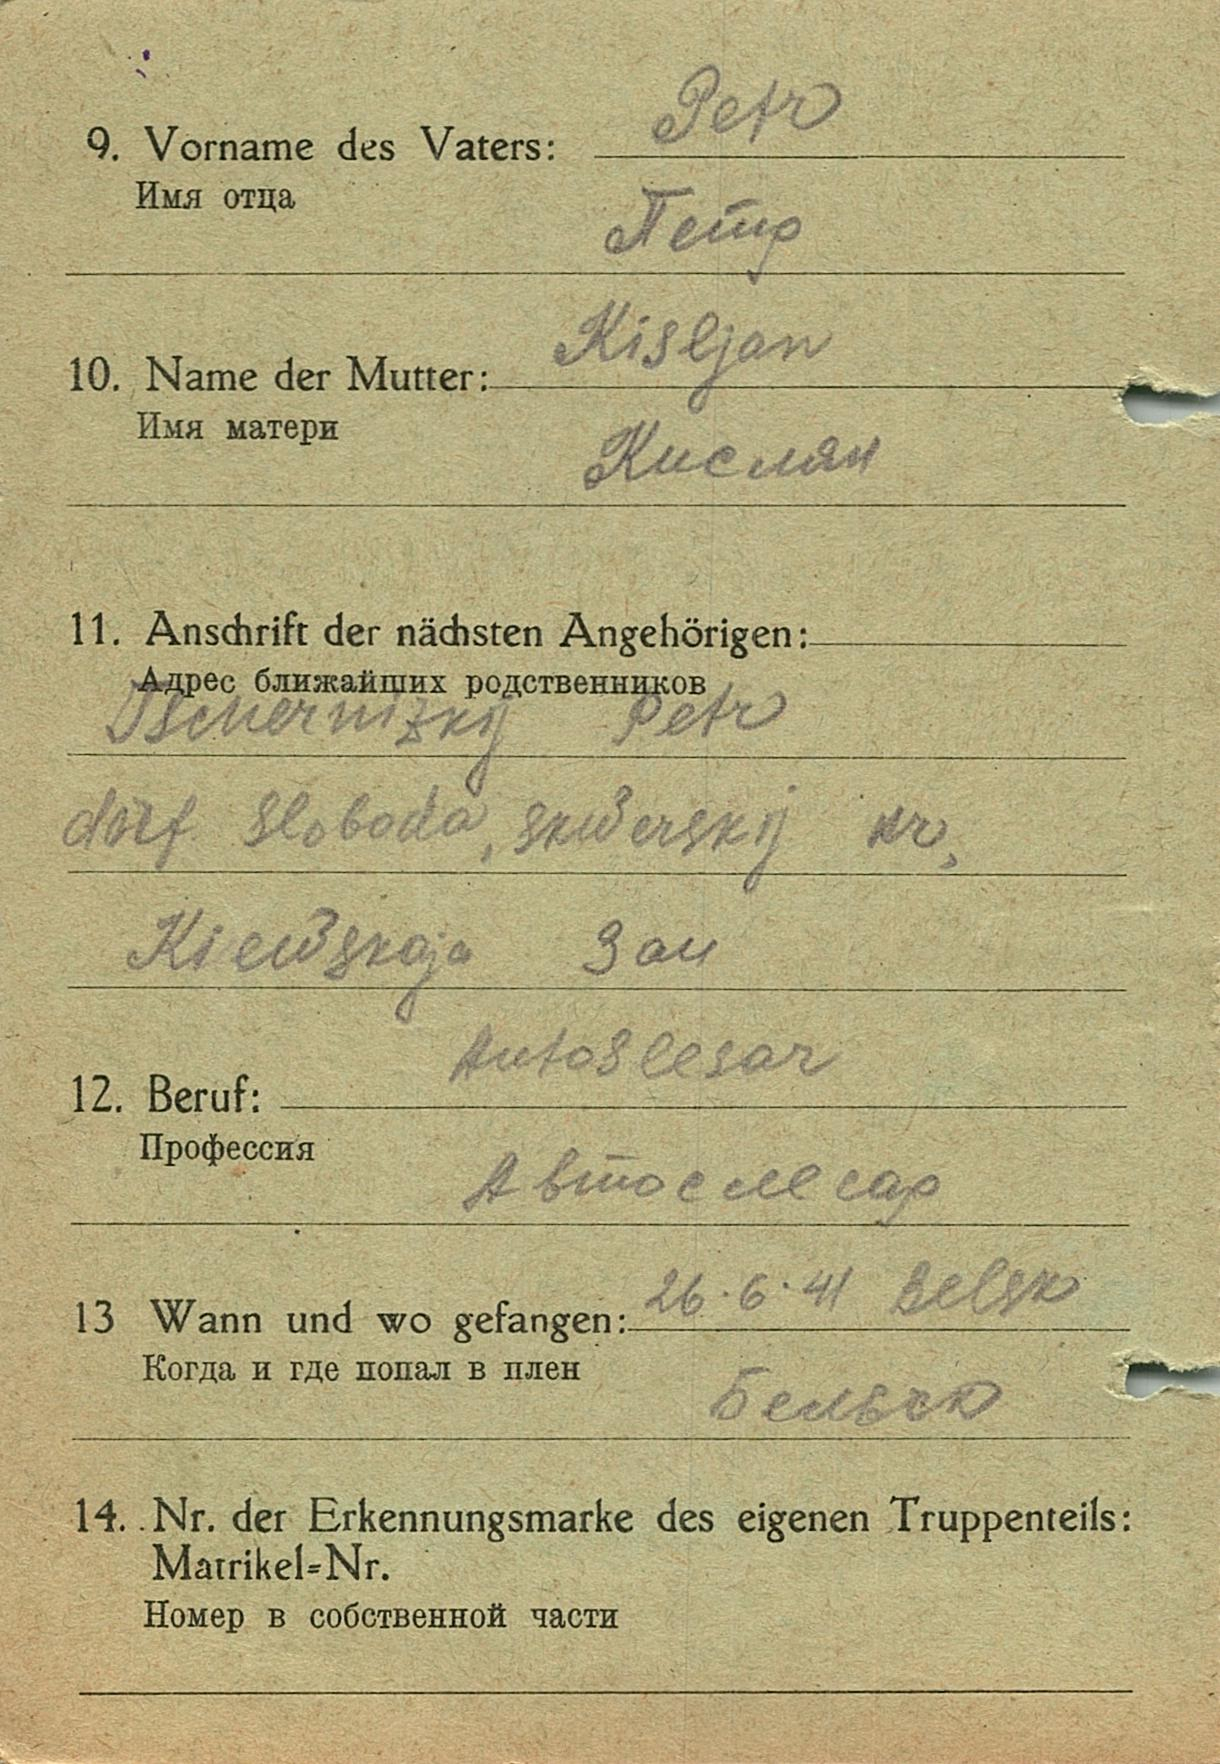 9. Vorname des Vaters: Petr
Имя отца
Петр
10. Name der Mutter: Kisljan
Имя матери
Кислян
11. Anschrift der nächsten Angehörigen:
Адрес ближайших родственников
Tschernizkij Petr
dorf Sloboda, skwerskij kr,
Kiewskaja
12. Beruf: Autoslesar
Профессия
Автослесар
13 Wann und wo gefangen: 26.6.41 Belsk
Когда и где попал в плен
Бельск
14. Nr. der Erkennungsmarke des eigenen Truppenteils:
Matrikel=Nr.
Номер в собственной части